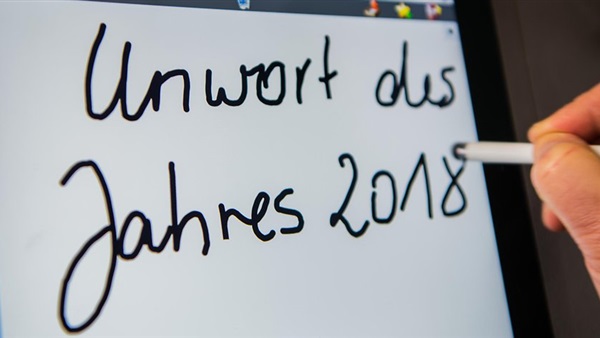 Unwort des
Jahres 2018